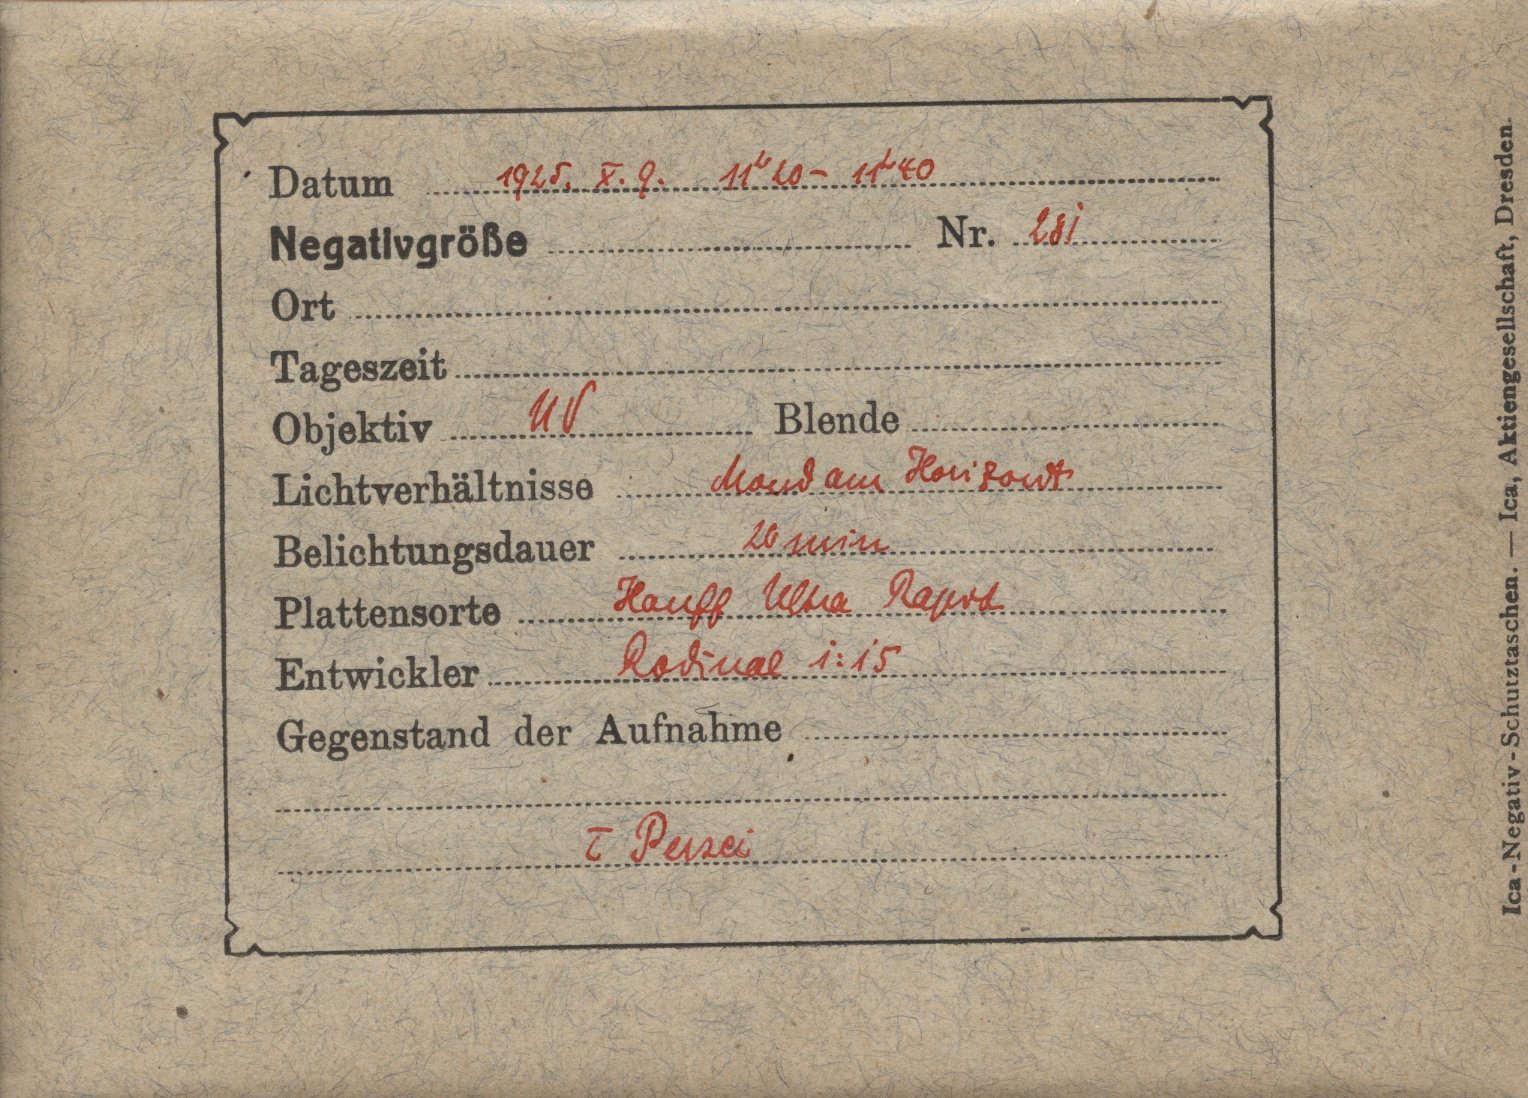 Datum 1925. X. 9. 11h20 – 11h40
Negativgröße Nr. 281
Ort
Tageszeit
Objektiv UV Blende
Lichtverhältnisse Mond am Horizont
Belichtungsdauer 20 min
Plattensorte Hauff Ultra Rapid
Entwickler Rodinal 1:15
Gegenstand der Aufnahme
τ Persei
Ica-Negativ-Schutztaschen. — Ica, Aktiengesellschaft, Dresden.